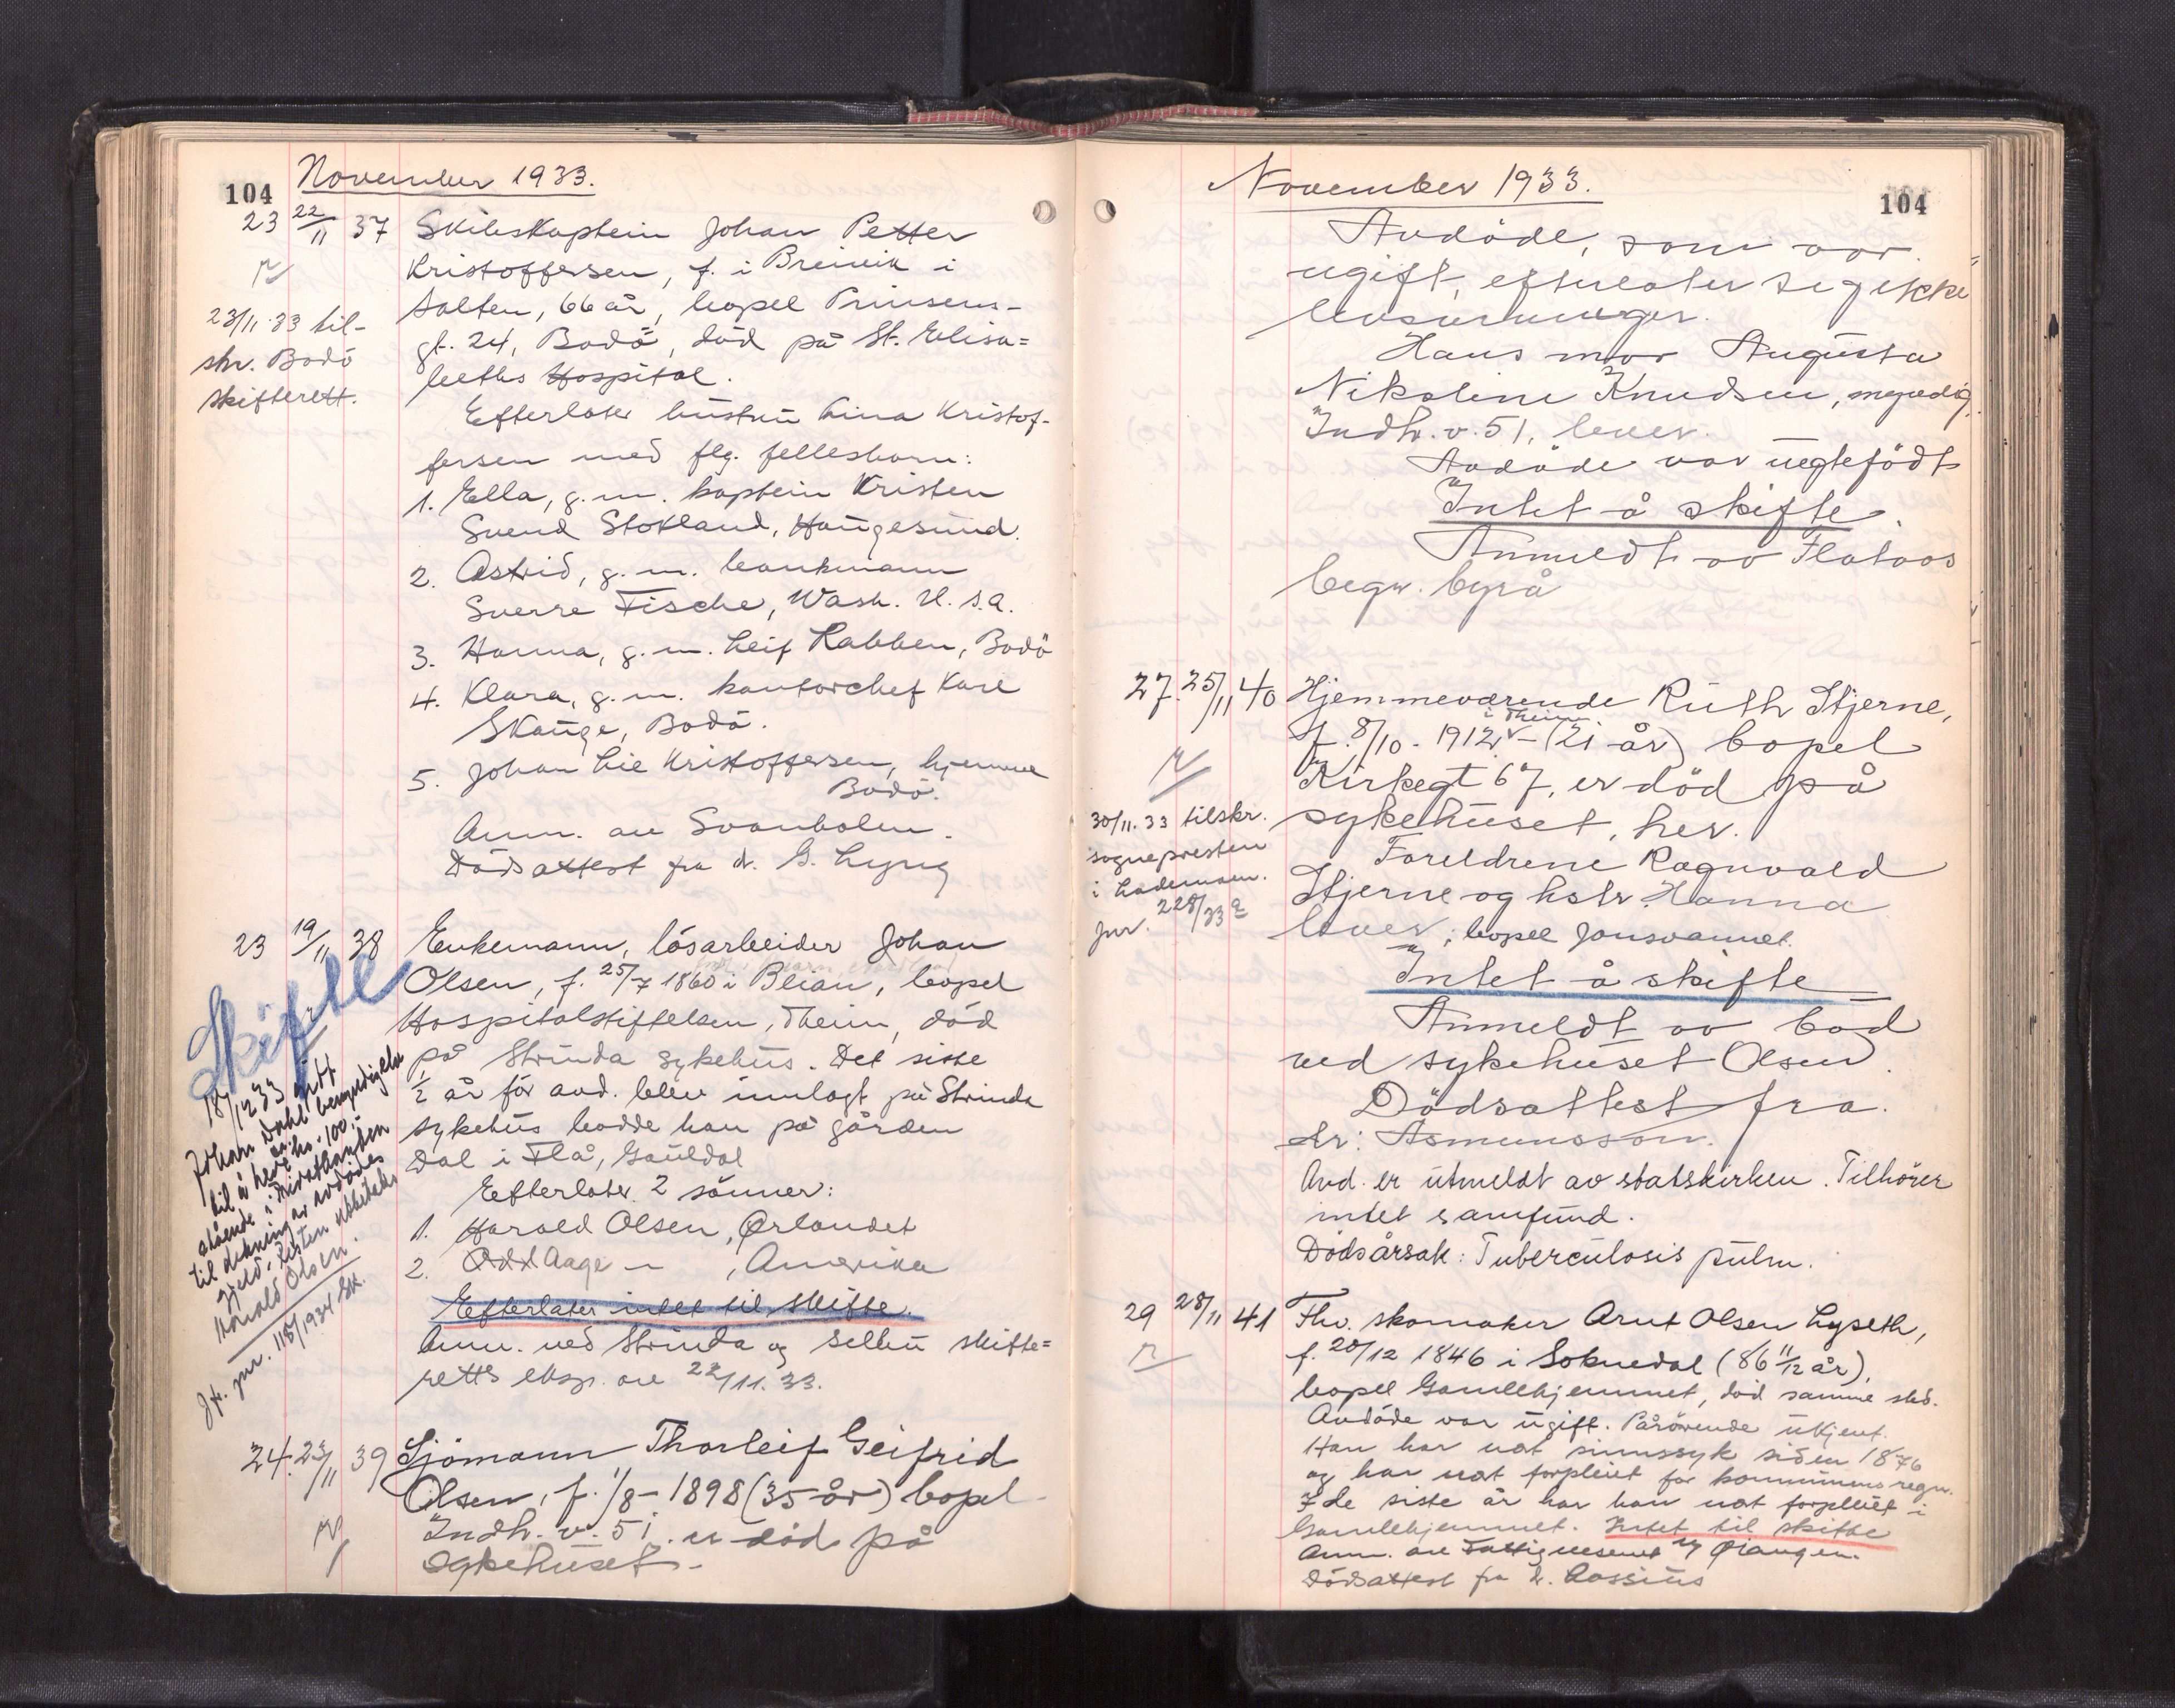 104 November 1933.
23 22/11 37 Skibskaptein Johan Petter
Kristoffersen, f. i Breivik i
Salten, 66 år, bopel Prinsens-
gt. 24, Bodö, död på St. Elisa=
beths Hospital.
23/11 33 til-
skr. Bodö
skifterett.
Efterlater hustru Lina Kristof-
fersen med flg. fellesbarn:
1. Ella, g.m. kaptein Kristen
Svend Stokland, Haugesund.
2. Astrid, g.m. bankmann
Sverre Fische, Wash. U.S.A.
3. Hanna, g.m. Leif Rabben, Bodö
4. Klara, g.m. kontorchef Kare
Skauge, Bodö.
5. Johan Lie Kristoffersen, hjemme
Bodö.
Anm. av Svanholm.
Dödsattest fra d. G. Lyng
23 19/11 38 Enkemann, lösarbeider Johan
Olsen, f. 25/7 1860 i Beian, bopel
Hospitalstiftelsen, Theim, död
på Strinda sykehus. Det siste
1/2 år för avd. blev innlagt på Strinda
sykehus bodde han på gården
Dal i Flå, Gauldal
Efterlater 2 sönner:
1. Harald Olsen, Ørlandet
2. Odd Aage — , Amerika
Efterlater intet til skifte.
Anm. ved Strinda og Selbu skifte=
retts eksp. av 22/11.33.
Skifte
18/12 33 gitt
Johan Dahl bemyndigelse
til å heve kr. 100.-
stående i
til dekning av avdødes
gjeld, resten utbetales
Harald Olsen.
Jfr. jnr. 118/1934 Sk.
24. 23/11 39 Sjömann Thorleif Geifrid
Olsen, f. 1/8 - 1898 (35 år) bopel
Indh. v. 51. er död på
Sykehuset.
November 1933. 104
Avdöde, som var
ugift, efterlater sig ikke
livsarvinger.
Hans mor Augusta
Nikoline Knudsen, myndig,
Indh. v. 51, lever.
Avdöde var uegtefödt
Intet å skifte.
Anmeldt av Flataas
begr. byrå
27. 25/11 40 Hjemmeværende Ruth Stjerne,
i Theim
f. 8/10 - 1912 - (21 år) bopel
Kirkegt 67, er död på
sykehuset, her.
30/11.33 tilskr.
sognepresten
i Lademoen.
jnr. 228/33 2
Foreldrene Ragnvald
Stjerne og hstr. Hanna
lever, bopel Jonsvannet.
Intet å skifte
Anmeldt av bud
ved sykehuset Olsen.
Dödsattest fra.
dr: Asmunsson.
Avd. er utmeldt av statskirken. Tilhörer
intet samfund.
Dödsårsak: Tuberculosis pulm.
29 28/11 41 Fhv. skomaker Arnt Olsen Lyseth,
f. 20/12 1846 i Soknedal (86 11/12 år),
bopel Gamlehjemmet, död samme sted.
Avdöde var ugift. Pårörende ukjent.
Han har vat sinnssyk siden 1876
og har vat forpleiet for kommunens regn.
I de siste år har han vat forpleiet i
Gamlehjemmet. Intet til skifte
Anm. av Fattigvesenet v/ Øiangen.
Dödsattest fra d. Rossius